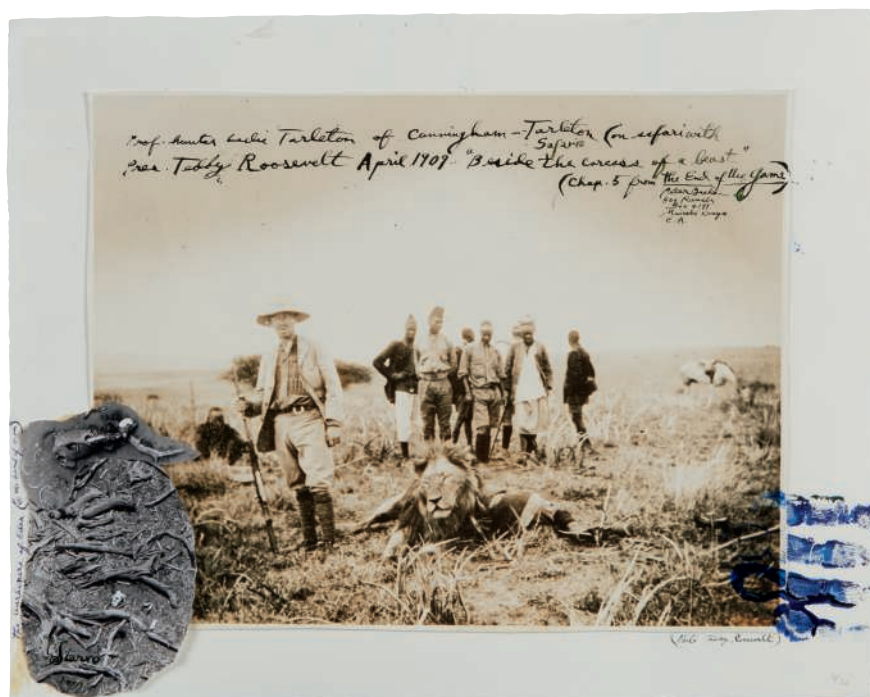 Prof. hunter Leslie Tarleton of Cunningham – Tarleton (on safari with
Safaris
Pres. "Teddy" Roosevelt April 1909 "Beside the carcass of a beast"
(Chap. 5 from the End of the Game
Peter Beard
Hog Ranch
Nairobi Kenya
E. A.
Starvo
(Photo Roosevelt)